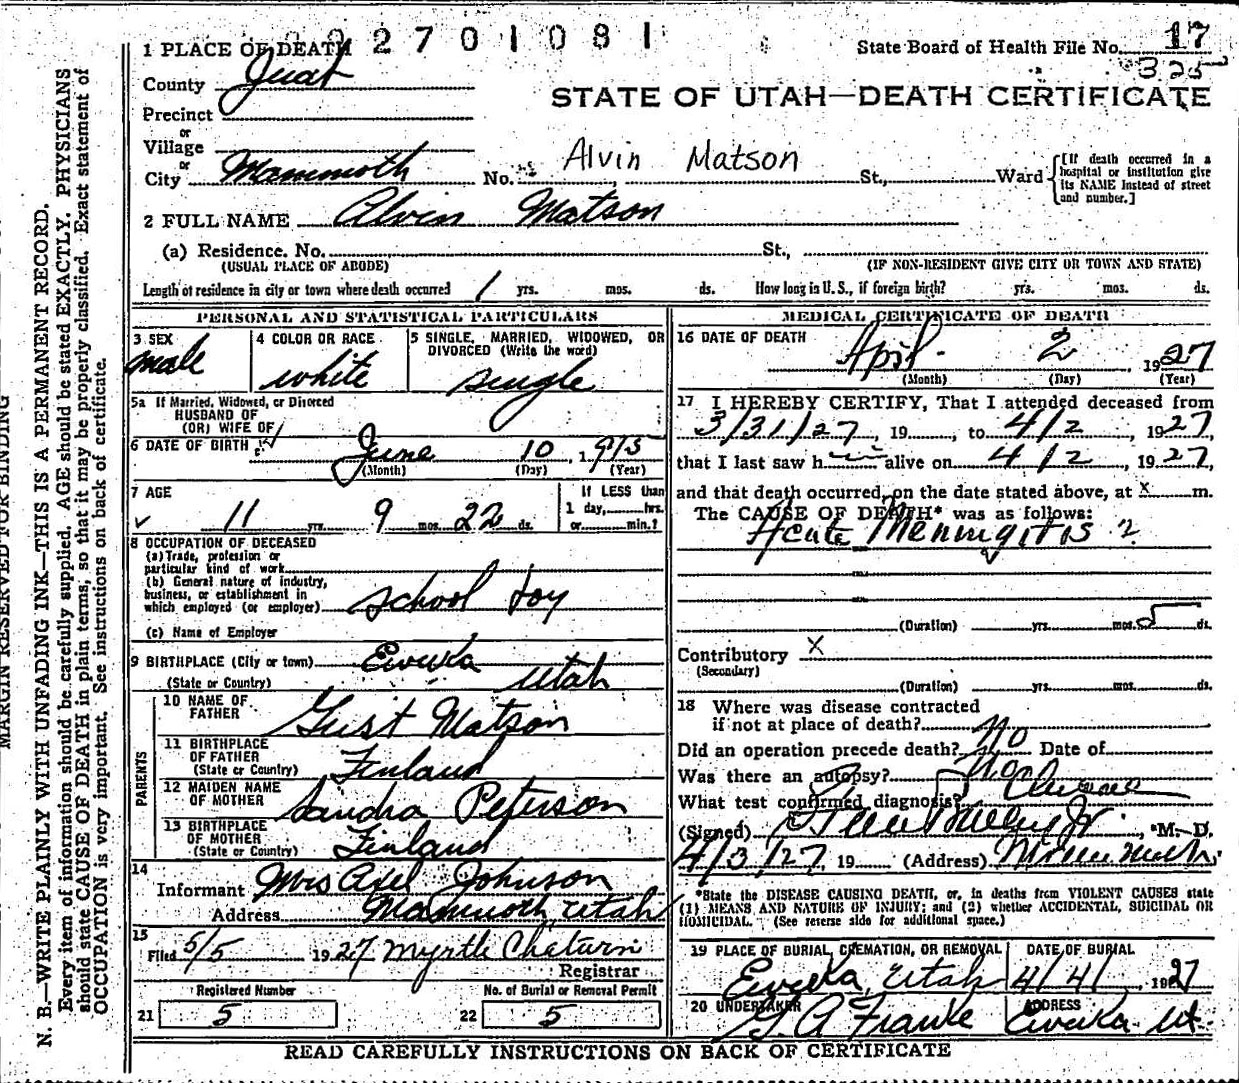 2701081
State Board of Health File No. 17
325
1 PLACE OF DEATH
County Juab
STATE OF UTAH—DEATH CERTIFICATE
Precinct
or
Village
or
City Mammoth No. Alvin Matson St., Ward [If death occurred in a hospital or institution give its NAME instead of street and number.]
2 FULL NAME Alvin Matson
(a) Residence. No. St.,
(USUAL PLACE OF ABODE) (IF NON-RESIDENT GIVE CITY OR TOWN AND STATE)
Length of residence in city or town where death occurred 1 yrs. mos. ds. How long in U. S., if foreign birth? yrs. mos. ds.
PERSONAL AND STATISTICAL PARTICULARS
3 SEX male
4 COLOR OR RACE white
5 SINGLE, MARRIED, WIDOWED, OR
DIVORCED (Write the word) single
5a If Married, Widowed, or Divorced
HUSBAND OF
(OR) WIFE OF
6 DATE OF BIRTH June 10, 1915
(Month) (Day) (Year)
7 AGE
11 yrs. 9 mos. 22 ds.
If LESS than
1 day, hrs.
or min.?
8 OCCUPATION OF DECEASED
(a) Trade, profession or
particular kind of work
(b) General nature of industry,
business, or establishment in
which employed (or employer) school boy
(c) Name of Employer
9 BIRTHPLACE (City or town) Eureka
(State or Country) Utah
PARENTS
10 NAME OF
FATHER Gust Matson
11 BIRTHPLACE
OF FATHER
(State or Country) Finland
12 MAIDEN NAME
OF MOTHER Sandra Peterson
13 BIRTHPLACE
OF MOTHER
(State or Country) Finland
14
Informant Mrs Axel Johnson
Address Mammoth, Utah
15
Filed 5/5 1927 Myrtle
Registrar
Registered Number
21 5
No. of Burial or Removal Permit
22 5
MEDICAL CERTIFICATE OF DEATH
16 DATE OF DEATH
April 2 1927
(Month) (Day) (Year)
17 I HEREBY CERTIFY, That I attended deceased from
3/31/27, 19 , to 4/2, 1927,
that I last saw him alive on 4/2, 1927,
and that death occurred, on the date stated above, at x m.
The CAUSE OF DEATH* was as follows:
Acute Meningitis ?
(Duration) yrs. mos. 5 ds.
Contributory X
(Secondary)
(Duration) yrs. mos. ds.
18 Where was disease contracted
if not at place of death?
Did an operation precede death? No Date of
Was there an autopsy? No
What test confirmed diagnosis?
(Signed) , M. D.
4/3/27 19 (Address)
*State the DISEASE CAUSING DEATH, or, in deaths from VIOLENT CAUSES state
(1) MEANS AND NATURE OF INJURY; and (2) whether ACCIDENTAL, SUICIDAL OR
HOMICIDAL. (See reverse side for additional space.)
19 PLACE OF BURIAL, CREMATION, OR REMOVAL
Eureka, Utah
DATE OF BURIAL
4/4/ 1927
20 UNDERTAKER
G. A Franke
ADDRESS
Eureka Ut.
READ CAREFULLY INSTRUCTIONS ON BACK OF CERTIFICATE
MARGIN RESERVED FOR BINDING
N. B.—WRITE PLAINLY WITH UNFADING INK—THIS IS A PERMANENT RECORD.
Every item of information should be carefully supplied. AGE should be stated EXACTLY. PHYSICIANS
should state CAUSE OF DEATH in plain terms, so that it may be properly classified. Exact statement of
OCCUPATION is very important. See instructions on back of certificate.